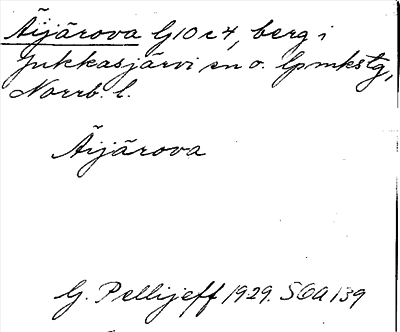 Äijärova G10c4, berg i
Jukkasjärvi sn o. lpmkstg,
Norrb. l.
Äijärova
G. Pellijeff 1929. SOA 139